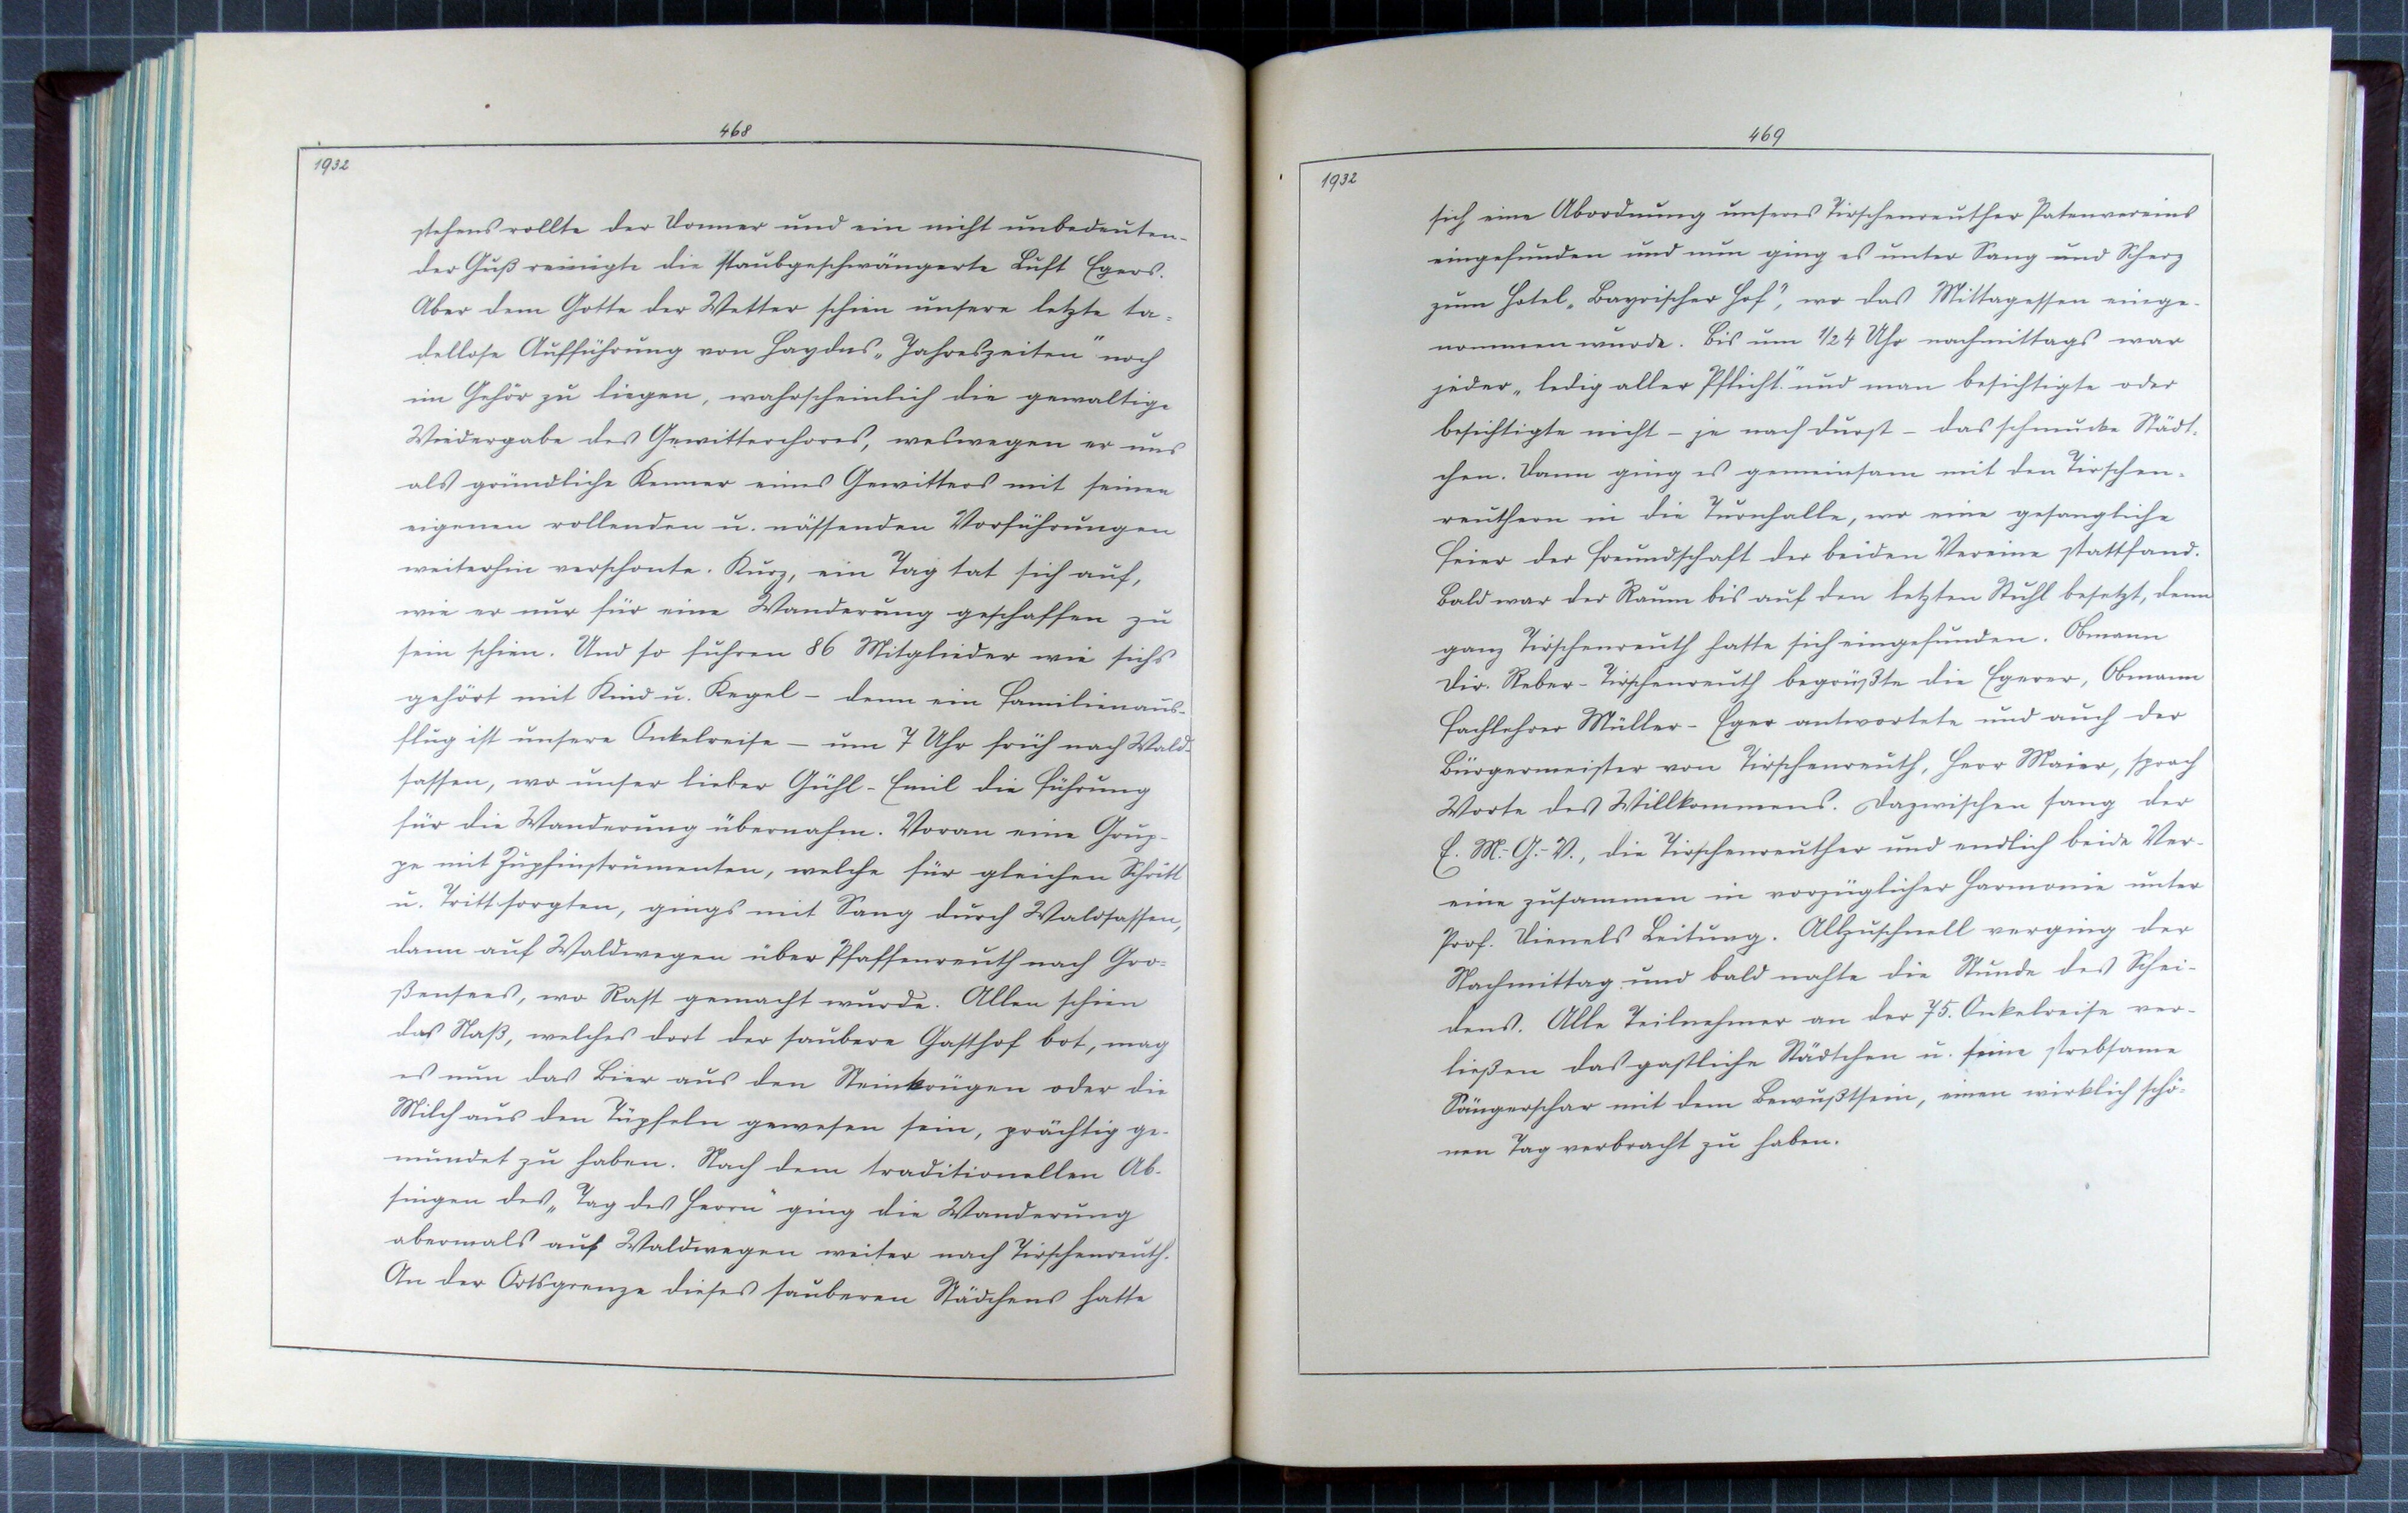 468
1932
stehens rollte der Donner und ein nicht unbedeuten-
der Guß reinigte die staubgeschwängerte Luft Egers.
Aber dem Gotte der Wetter schien unsere letzte ta-
dellose Aufführung von Haydns „Jahreszeiten" noch
im Gehör zu liegen, wahrscheinlich die gewaltige
Wiedergabe des Gewitterchores, weswegen er uns
als gründliche Kenner eines Gewitters mit seinen
eigenen rollenden u. nässenden Vorführungen
weiterhin verschonte. Kurz, ein Tag tat sich auf,
wie er nur für eine Wanderung geschaffen zu
sein schien. Und so fuhren 86 Mitglieder wie sichs
gehört mit Kind u. Kegel - denn ein Familienaus-
flug ist unsere Onkelreise - um 7 Uhr früh nach Wald-
sassen, wo unser lieber Gühl-Emil die Führung
für die Wanderung übernahm. Voran eine Grup-
pe mit Zupfinstrumenten, welche für gleichen Schritt
u. Tritt sorgten, gings mit Sang durch Waldsassen,
dann auf Waldwegen über Pfaffenreuth nach Gro-
ßensees, wo Rast gemacht wurde. Allen schien
das Naß, welches dort der saubere Gasthof bot, mag
es nun das Bier aus den Steinkrügen oder die
Milch aus den Tüpfeln gewesen sein, prächtig ge-
mundet zu haben. Nach dem traditionellen Ab-
singen des „Tag des Herrn" ging die Wanderung
abermals auf Waldwegen weiter nach Tirschenreuth.
An der Ortsgrenze dieses sauberen Städchens hatte
469
1932
sich eine Abordnung unseres Tirschenreuther Patenvereins
eingefunden und nun ging es unter Sang und Scherz
zum Hotel „Bayrischer Hof", wo das Mittagessen einge-
nommen wurde. Bis um 1/2 4 Uhr nachmittags war
jeder „ledig aller Pflicht" und man besichtigte oder
besichtigte nicht - je nach Durst - das schmucke Städt-
chen. Dann ging es gemeinsam mit den Tirschen-
reuthern in die Turnhalle, wo eine gesangliche
Feier der Freundschaft der beiden Vereine stattfand.
Bald war der Raum bis auf den letzten Stuhl besetzt, denn
ganz Tirschenreuth hatte sich eingefunden. Obmann
Dir. Reber-Tirschenreuth begrüßte die Egerer, Obmann
Fachlehrer Müller-Eger antwortete und auch der
Bürgermeister von Tirschenreuth, Herr Maier, sprach
Worte des Willkommens. Dazwischen sang der
E. M.-G.-V., die Tirschenreuther und endlich beide Ver-
eine zusammen in vorzüglicher Harmonie unter
Prof. Dienels Leitung. Allzuschnell verging der
Nachmittag und bald nahte die Stunde des Schei-
dens. Alle Teilnehmer an der 75. Onkelreise ver-
ließen das gastliche Städtchen u. seine strebsame
Sängerschar mit dem Bewußtsein, einen wirklich schö-
nen Tag verbracht zu haben.